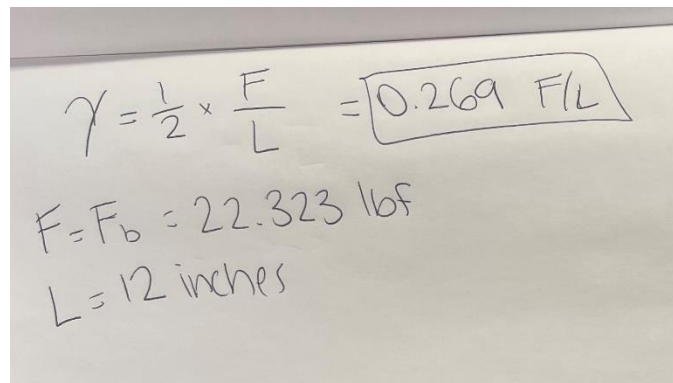 γ = 1/2 × F/L = 0.269 F/L
F = Fb = 22.323 lbf
L = 12 inches